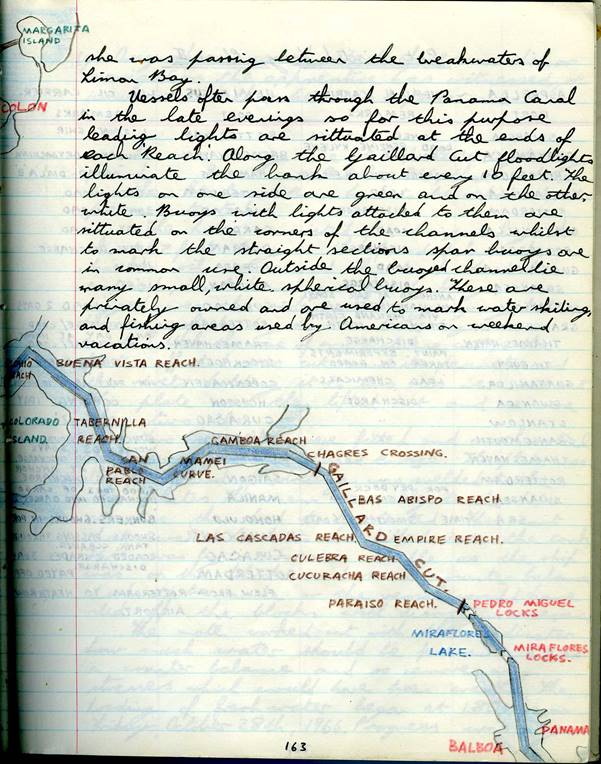 MARGARITA
ISLAND
COLON
she was passing between the breakwaters of
Limon Bay.
Vessels often pass through the Panama Canal
in the late evenings so for this purpose
leading lights are sittuated at the ends of
each Reach. Along the Gaillard Cut floodlights
illuminate the bank about every 10 feet. The
lights on one side are green and on the other,
white. Buoys with lights attached to them are
sittuated on the corners of the channels whilst
to mark the straight sections spar buoys are
in common use. Outside the buoyed channel lie
many small, white spherical buoys. These are
privately owned and are used to mark water skiing,
and fishing areas used by Americans on weekend
vacations.
REACH
BUENA VISTA REACH.
COLORADO
ISLAND.
TABERNILLA
REACH.
SAN
PABLO
REACH
MAMEI
CURVE.
GAMBOA REACH
CHAGRES CROSSING.
GAILLARD CUT
BAS ABISPO REACH.
LAS CASCADAS REACH.
EMPIRE REACH.
CULEBRA REACH
CUCURACHA REACH
PARAISO REACH.
PEDRO MIGUEL
LOCKS
MIRAFLORES
LAKE.
MIRAFLORES
LOCKS.
PANAMA
BALBOA
163